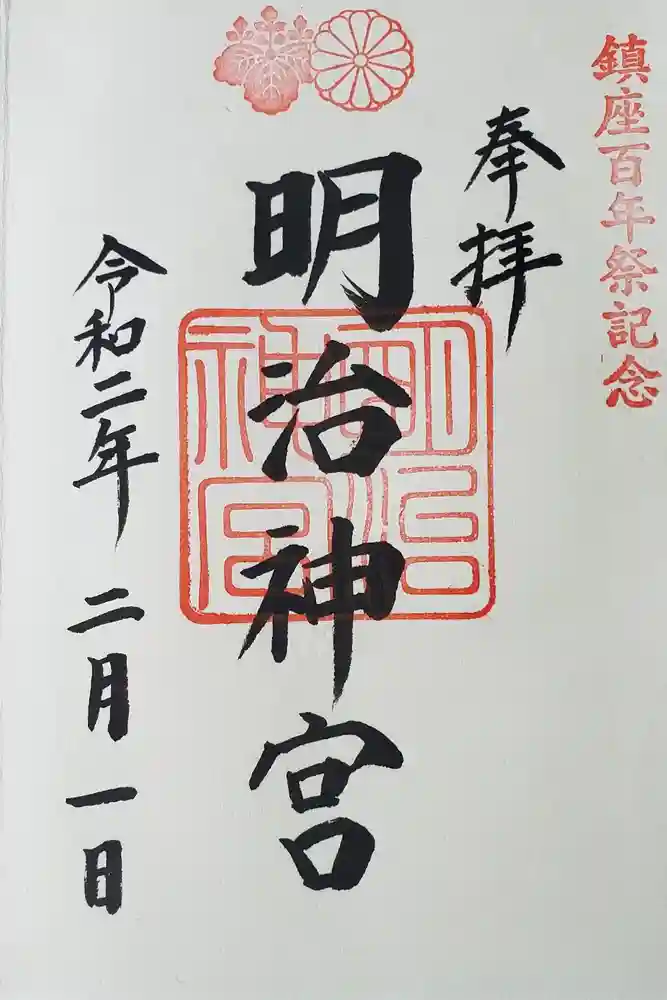 鎮座百年祭記念
奉拝
明治神宮
明治
神宮
令和二年 二月一日